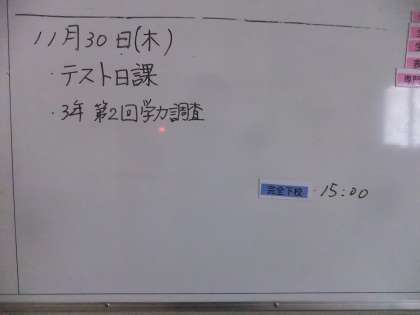 11月30日(木)
・テスト日課
・3年 第2回学力調査
完全下校 15:00
専門